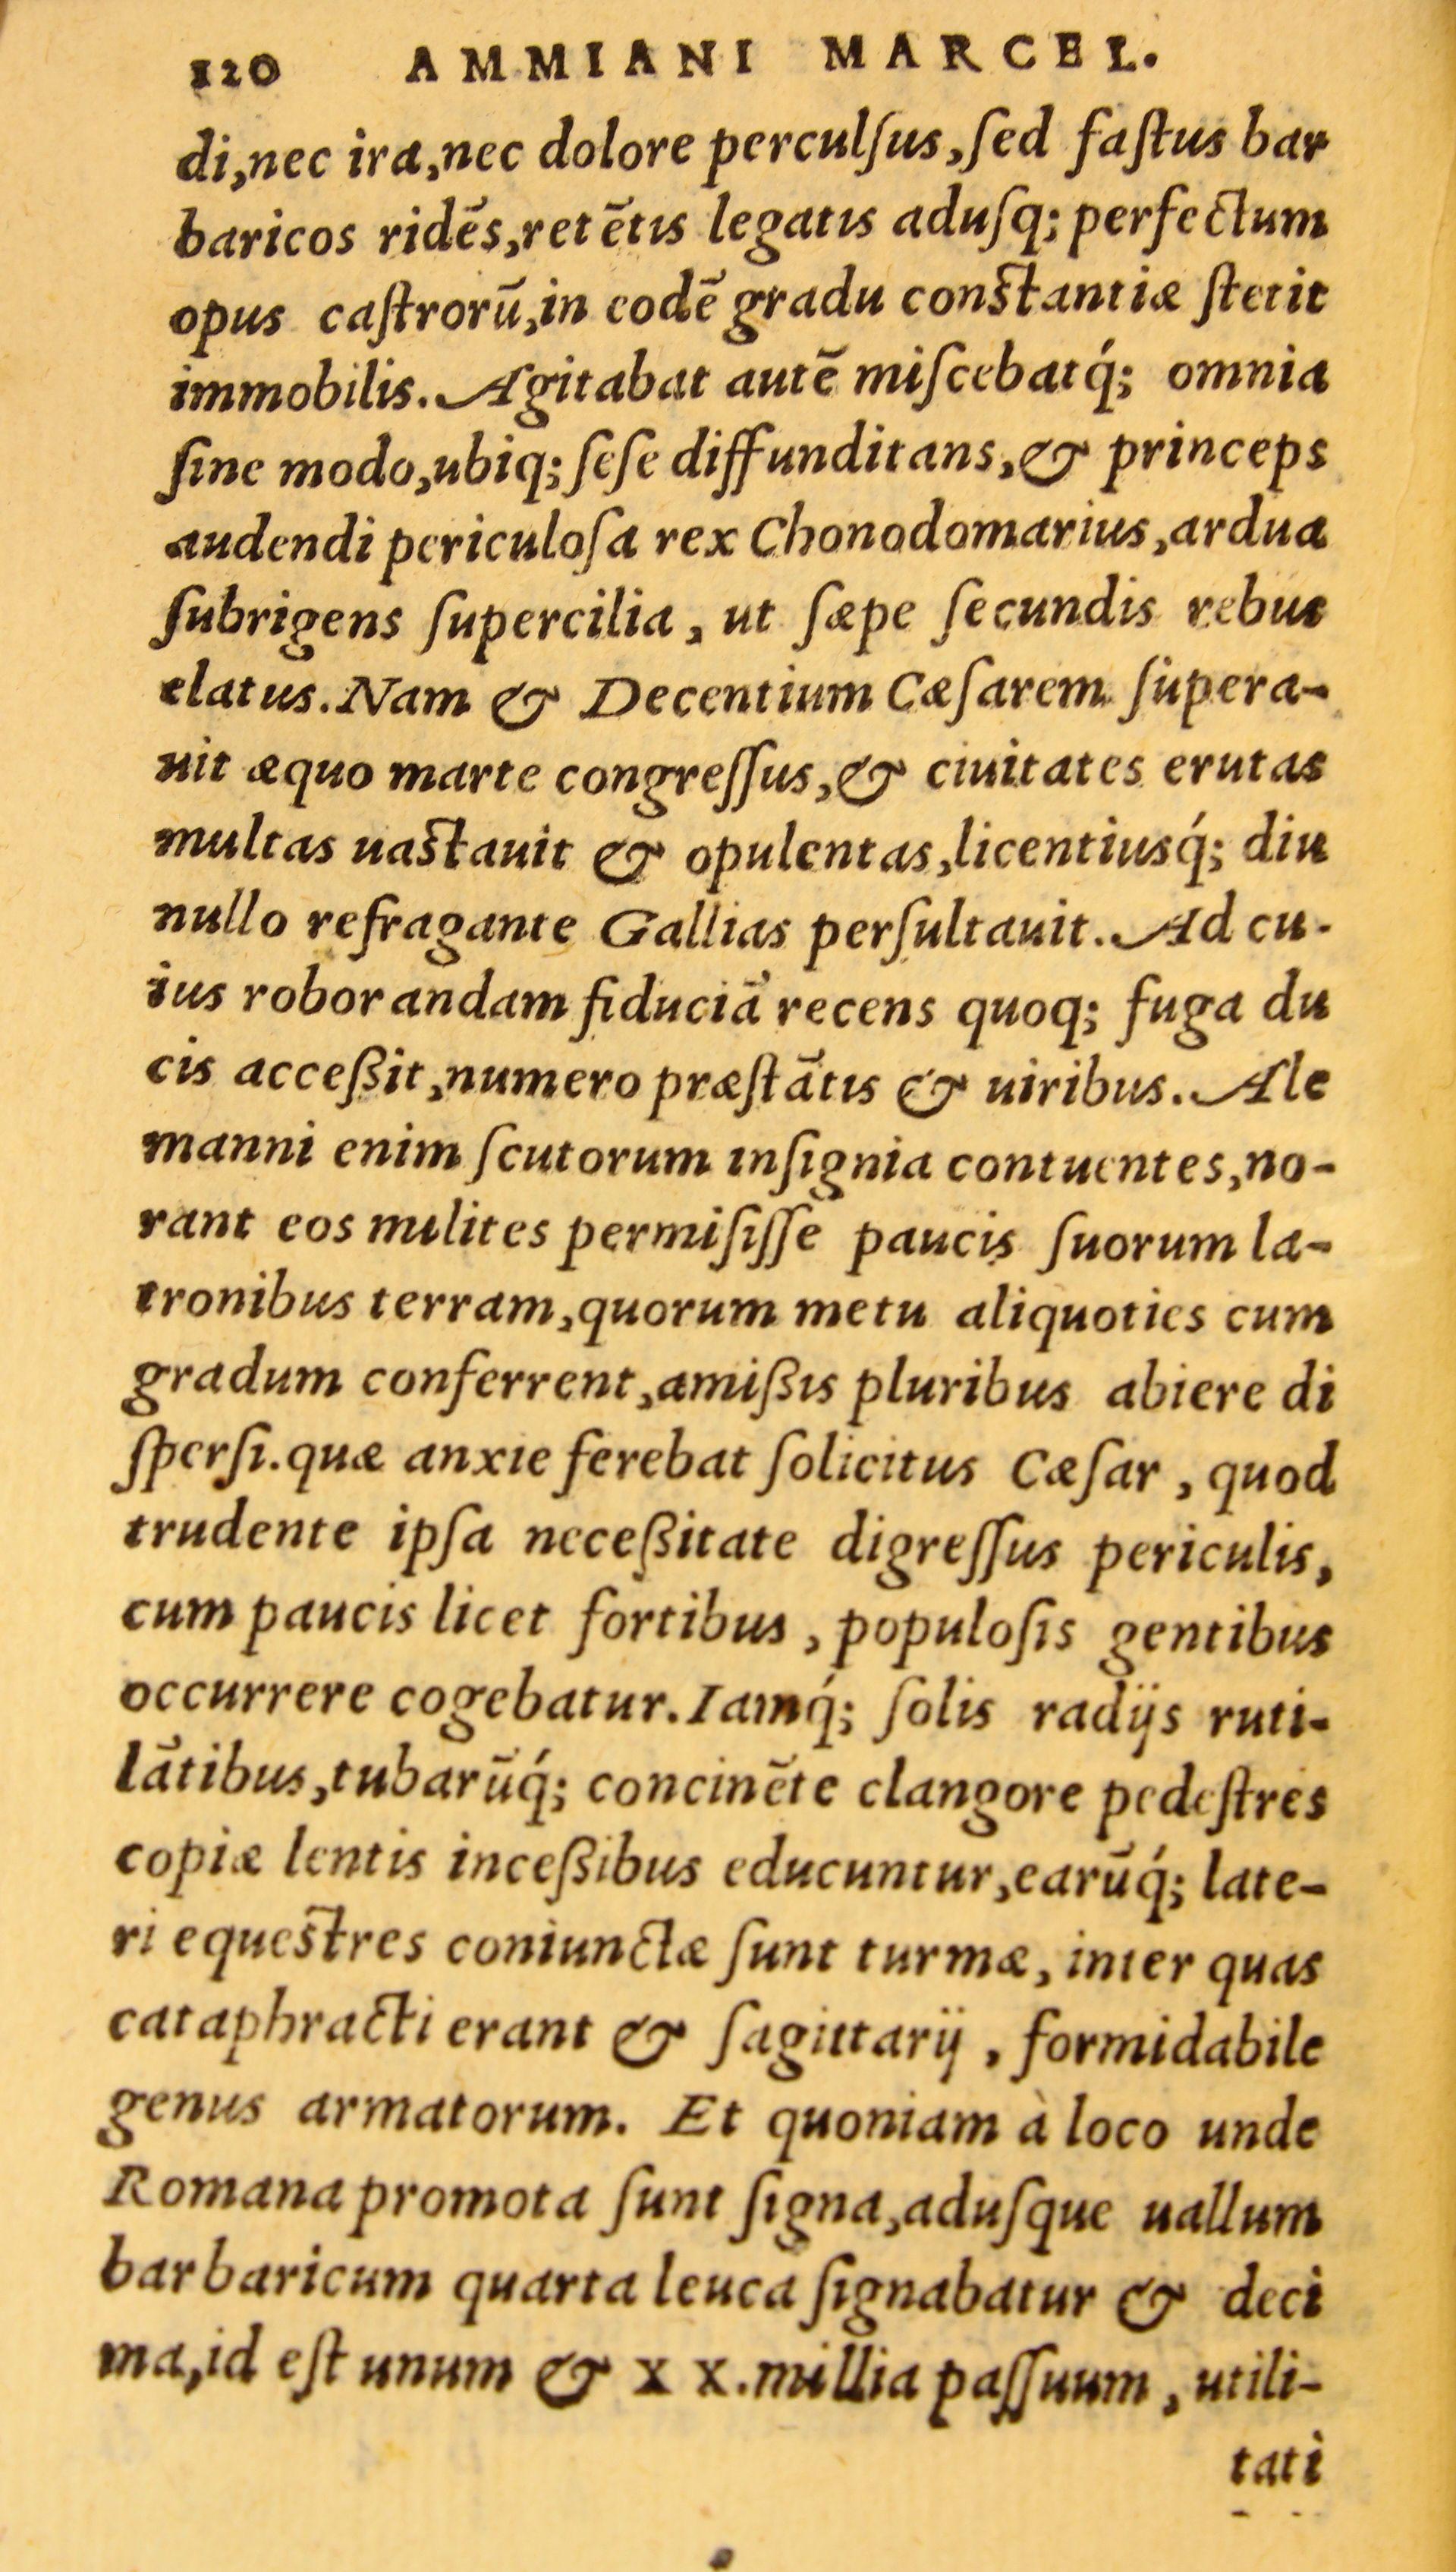 120 AMMIANI MARCEL.
di,nec ira,nec dolore perculſus,ſed faſtus bar
baricos ridēs,retētis legatis aduſq; perfectum
opus caſtrorū,in eodē gradu conſtantiæ ſtetit
immobilis. Agitabat autē miſcebatq́; omnia
ſine modo,ubiq; ſeſe diffunditans,& princeps
audendi periculoſa rex Chonodomarius,ardua
ſubrigens ſupercilia, ut ſæpe ſecundis rebus
elatus. Nam & Decentium Cæſarem ſupera-
uit æquo marte congreſſus,& ciuitates erutas
multas uaſtauit & opulentas,licentiusq́; diu
nullo refragante Gallias perſultauit. Ad cu-
ius roborandam fiduciā recens quoq; fuga du
cis acceßit,numero præſtātis & uiribus. Ale
manni enim ſcutorum inſignia contuentes,no-
rant eos milites permiſiſſe paucis ſuorum la-
tronibus terram,quorum metu aliquoties cum
gradum conferrent,amißis pluribus abiere di
ſperſi.quæ anxie ferebat ſolicitus Cæſar, quod
trudente ipſa neceßitate digreſſus periculis,
cum paucis licet fortibus, populoſis gentibus
occurrere cogebatur. Iamq́; ſolis radijs ruti-
lātibus,tubarūq́; concinēte clangore pedeſtres
copiæ lentis inceßibus educuntur,earūq́; late-
ri equeſtres coniunctæ ſunt turmæ, inter quas
cataphracti erant & ſagittarij, formidabile
genus armatorum. Et quoniam à loco unde
Romana promota ſunt ſigna,aduſque uallum
barbaricum quarta leuca ſignabatur & deci
ma,id eſt unum & X X. millia paſſuum, utili-
tati